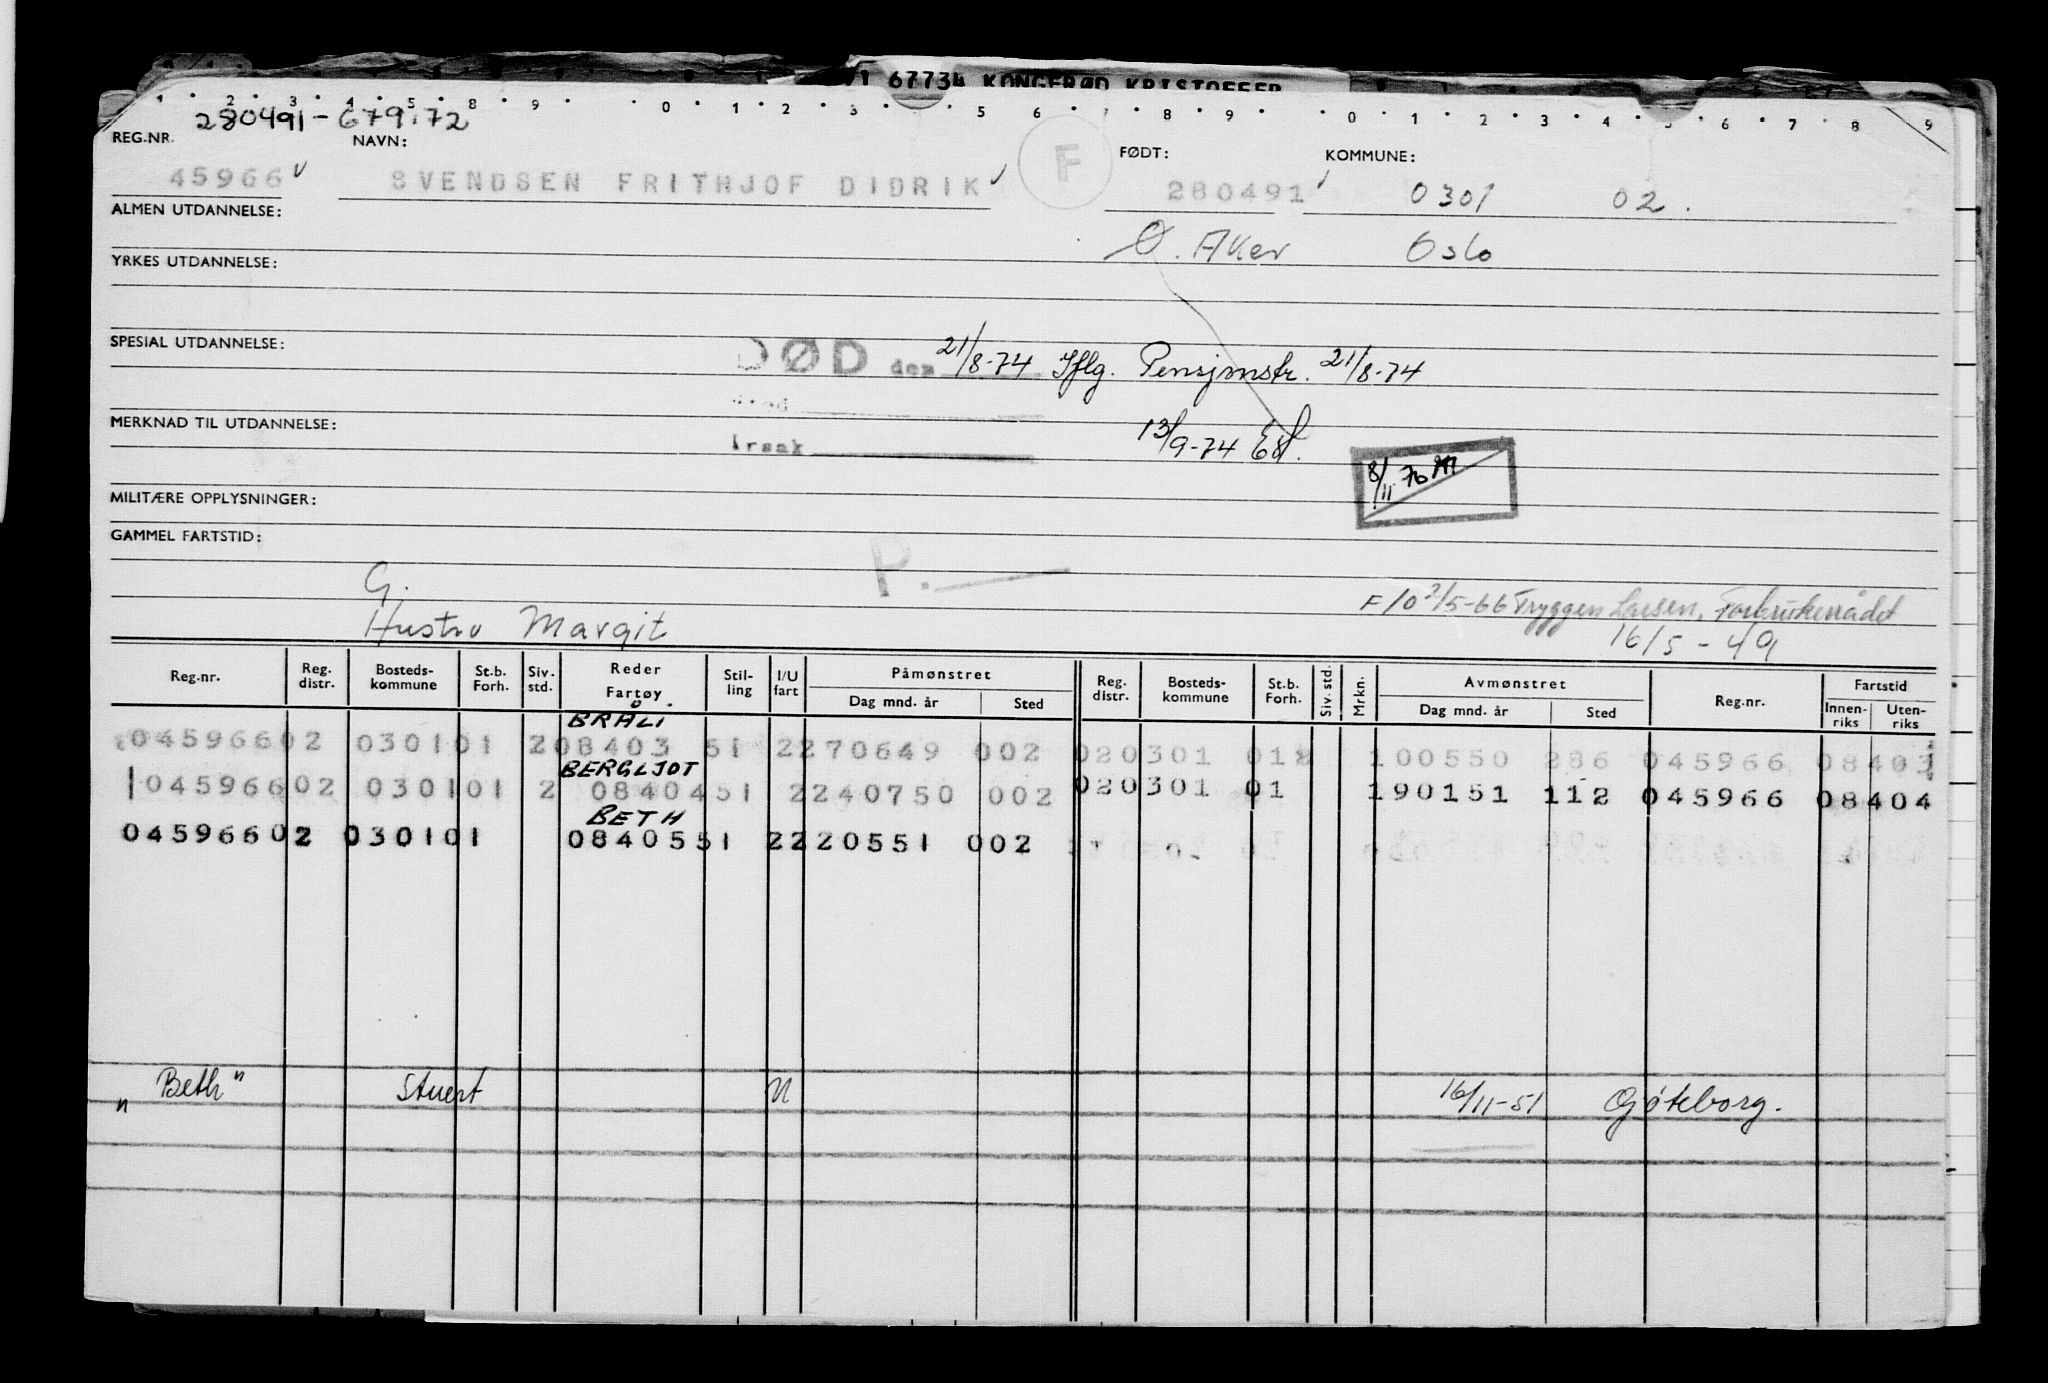 67734 KONGERØD KRISTOFFER
1 2 3 4 5 8 9 0 1 2 3 5 6 7 8 9 0 1 2 3 4 5 6 7 8 9
280491-67972
REG.NR. NAVN: FØDT: KOMMUNE:
45966 SVENDSEN FRITHJOF DIDRIK F 280491 0301 02.
ALMEN UTDANNELSE:
Ø. Aker Oslo
YRKES UTDANNELSE:
SPESIAL UTDANNELSE:
DØD den 21/8-74 Iflg. Pensjonstr. 21/8-74
MERKNAD TIL UTDANNELSE:
13/9-74
årsak
8/11 76
MILITÆRE OPPLYSNINGER:
GAMMEL FARTSTID:
P.
G.
F/O 2/5-66 Tryggen Larsen, Forbrukerrådet
Hustru Margit 16/5-49
Reg.nr. Reg. distr. Bosteds-kommune St.b. Forh. Siv. std. Reder Fartøy Stil-ling I/U fart Påmønstret Dag mnd. år Sted Reg. distr. Bosteds-kommune St.b. Forh. Siv. std. Mrkn. Avmønstret Dag mnd. år Sted Reg.nr. Fartstid Innen-riks Uten-riks
BRÅLI
04596602 030101 208403 51 2270649 002 020301 012 100550 286 045966 08403
BERGLJOT
104596602 030101 2 0840451 2240750 002 020301 01 190151 112 045966 08404
BETH
04596602 030101 0840551 2220551 002
"Beth" Stuert U 16/11-51 Gøteborg.